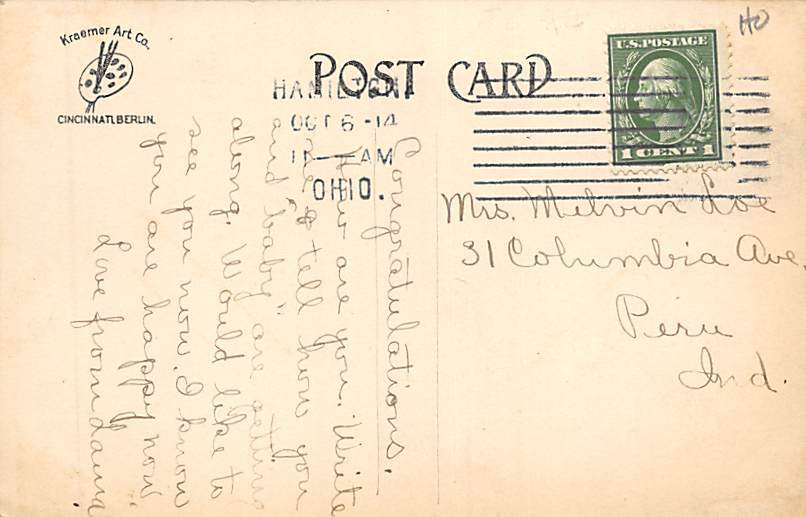 Kraemer Art Co.
CINCINNATI. BERLIN.
POST CARD
HAMILTON,
OCT 6 -14
11-AM
OHIO.
U.S. POSTAGE
1 CENT 1
HO
Mrs. Melvin Loe
31 Columbia Ave.
Peru
Ind.
Congratulations.
How are you. Write
me & tell how you
and "baby" are getting
along. Would like to
see you now. I know
you are happy now
Love from Laura.